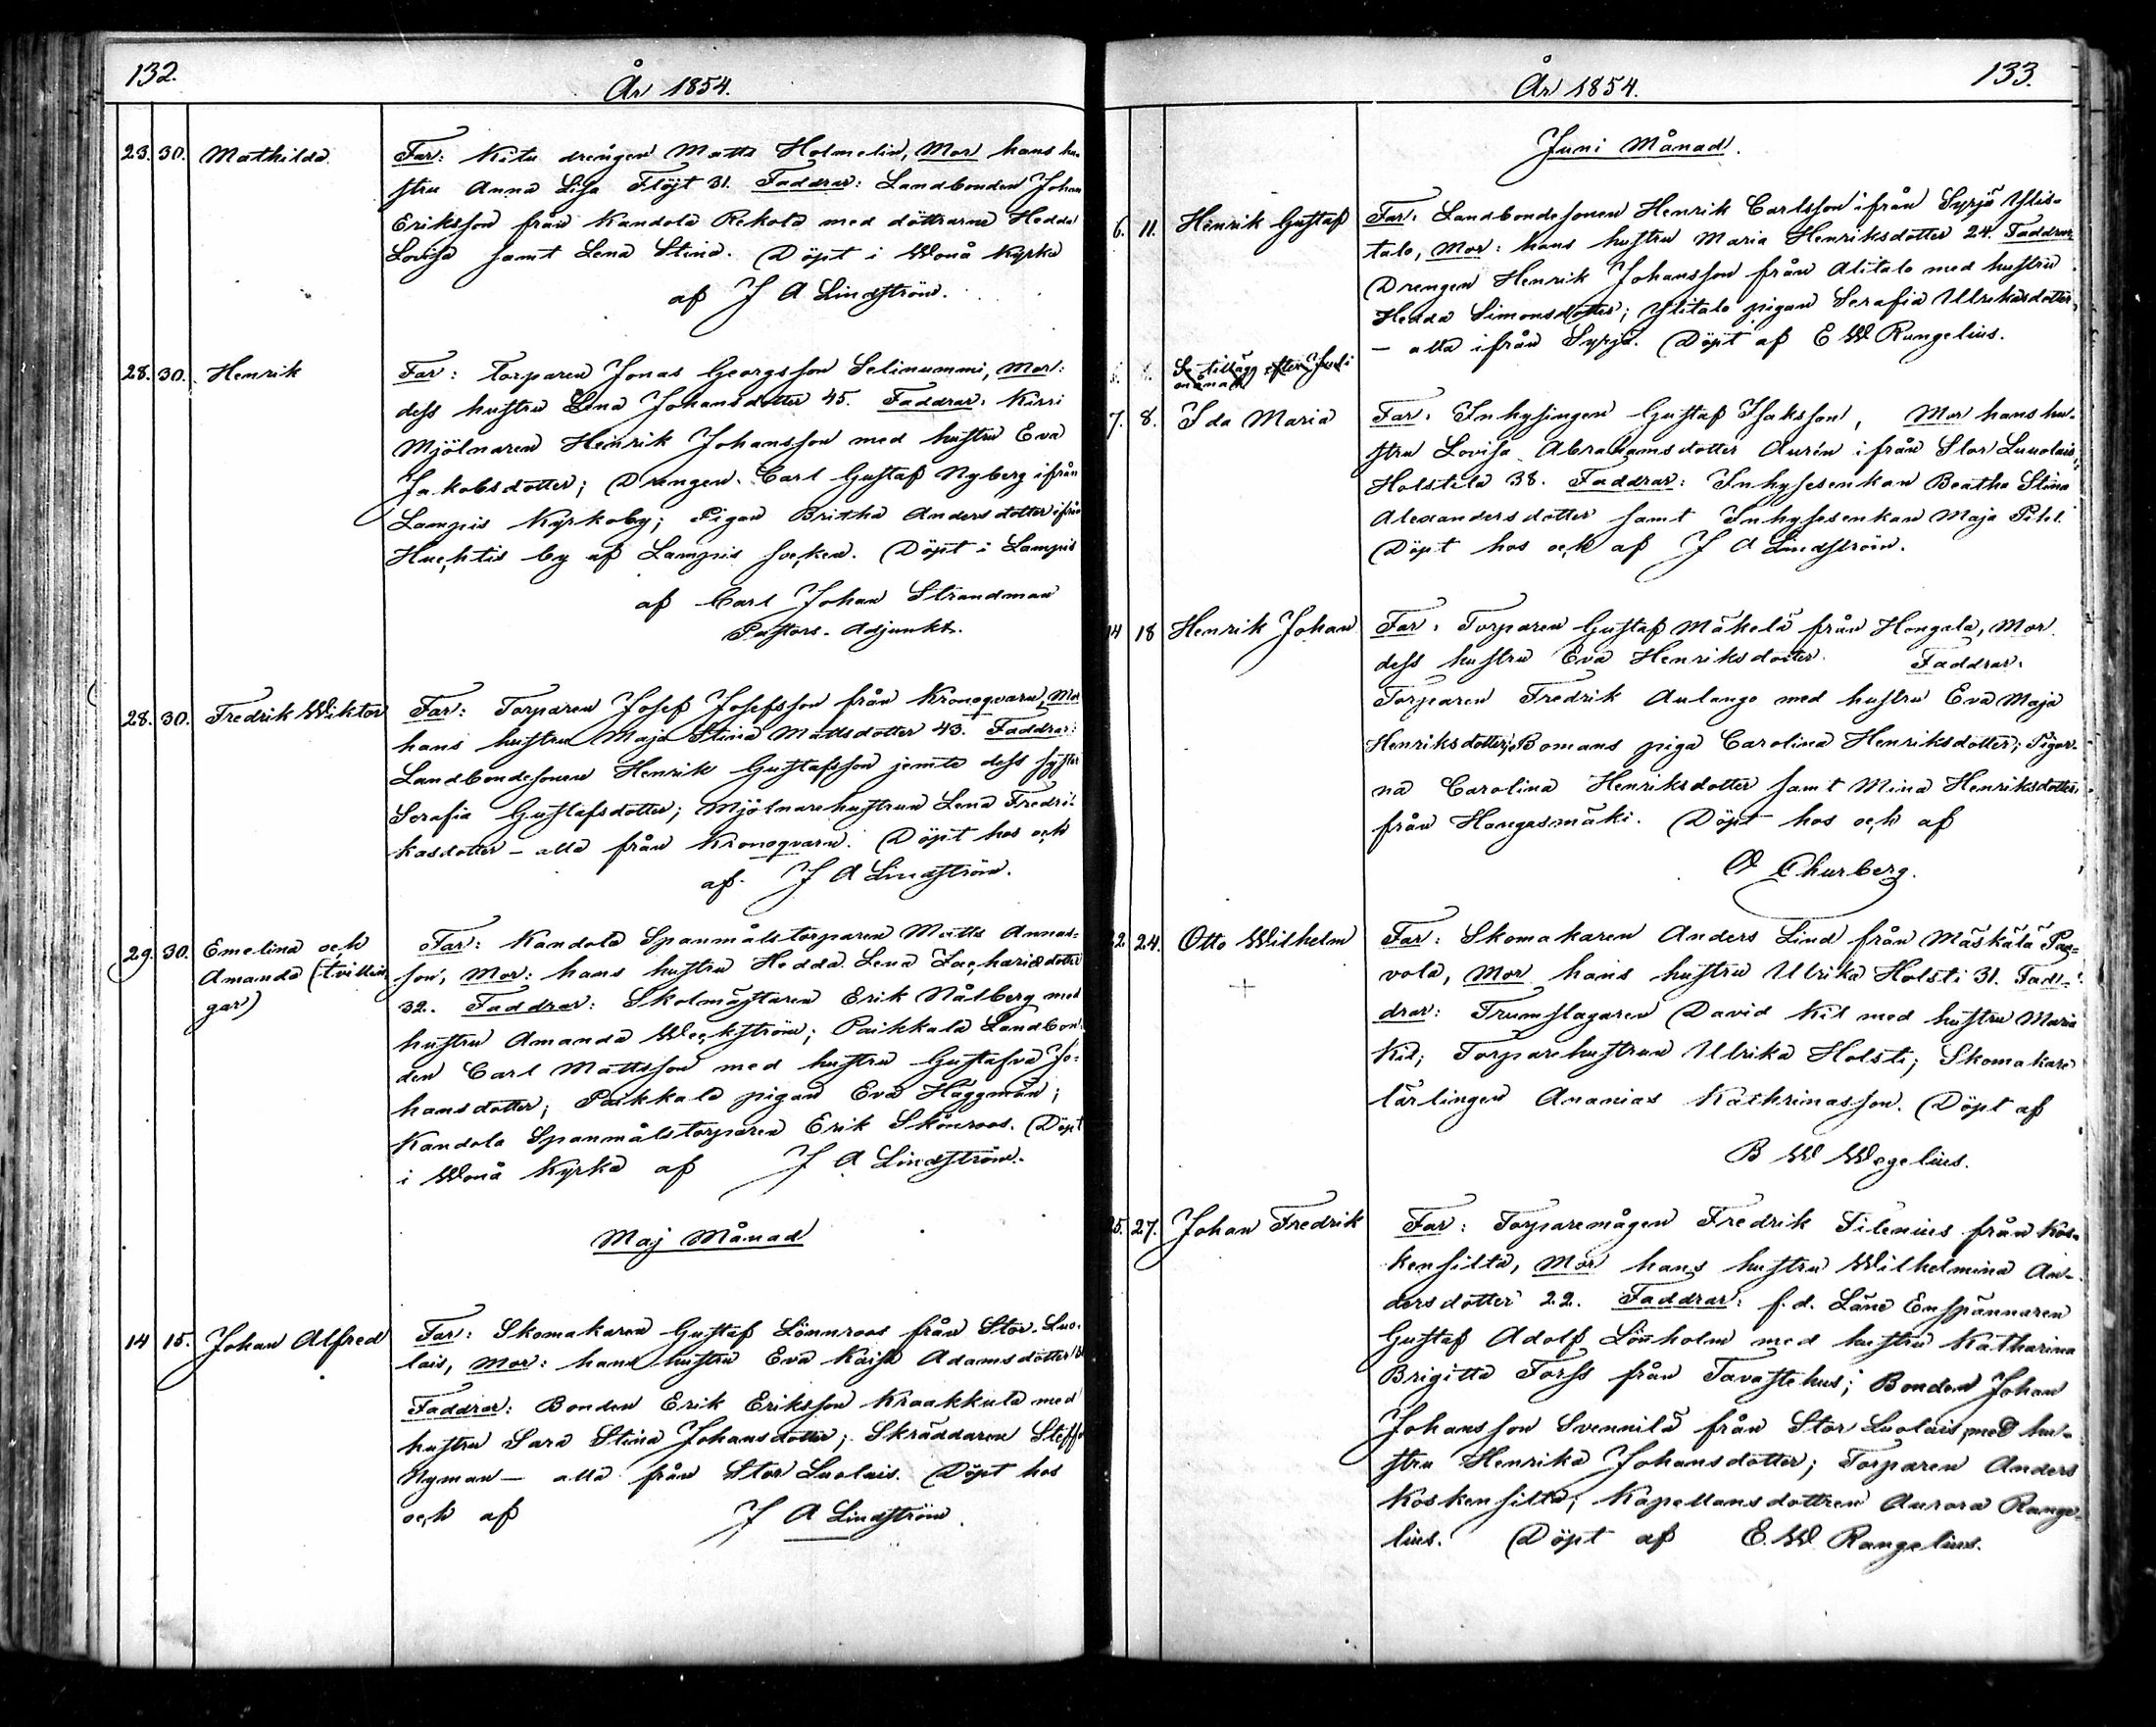 132.
År 1854.
23. 30. Mathilda. Far: Kitu drengen Matts Holmelin, Mor hans hu-
stru Anna Lisa Flöjt 31. Faddrar: Landbonden Johan
Eriksson från Kandola Rekola med döttrarne Hedda
Lovisa samt Lena Stina. Döpt i Wonå Kyrka
af J A Lindström.
28. 30. Henrik Far: Torparen Jonas Georgsson Selinummi, Mor:
dess hustru Lena Johansdotter 45. Faddrar: Kirri
Mjölnaren Henrik Johansson med hustru Eva
Jakobsdotter; Drengen Carl Gustaf Nyberg ifrån
Lampis Kyrkoby; Pigan Britha Andersdotter ifrån
Huchtis by af Lampis socken. Döpt i Lampis
af Carl Johan Strandman
Pastors-Adjunkt.
28. 30. Fredrik Wiktor Far: Torparen Josef Josefsson från Kronoqvarn, Mor
hans hustru Maja Stina Mattsdotter 43. Faddrar:
Landbondesonen Henrik Gustafsson jemte dess syster
Serafia Gustafsdotter; Mjölnarehustrun Lena Fredri-
kasdotter – alla från Kronoqvarn. Döpt hos och
af J A Lindström.
29. 30. Emelina och
Amanda (tvillin
gar)
Far: Kandola Spanmålstorparen Matts Annas-
son, Mor: hans hustru Hedda Lena Zachariædotter
32. Faddrar: Skolmästaren Erik Nålberg med
hustru Amanda Weckström; Paikkala Landbon
den Carl Mattsson med hustru Gustafva Jo-
hansdotter; Paikkala pigan Eva Häggman;
Kandola Spanmålstorparen Erik Skönroos. Döpt
i Wonå Kyrka af J A Lindström.
Maj Månad
14 15. Johan Alfred Far: Skomakaren Gustaf Lönnroos från Stor-Luo-
lais, Mor: hans hustru Eva Kaisa Adamsdotter
Faddrar: Bonden Erik Eriksson Kraakkula med
hustru Sara Stina Johansdotter; Skräddaren Steff
Nyman – alla från Stor Luolais. Döpt hos
och af J A Lindström.
133.
År 1854.
Juni Månad.
6. 11. Henrik Gustaf Far: Landbondesonen Henrik Carlsson ifrån Syrjä Ylis-
talo, Mor: hans hustru Maria Henriksdotter 24. Faddrar
Drengen Henrik Johansson från Alitalo med hustru
Hedda Simonsdotter; Ylitalo pigan Serafia Ulrikasdotter,
– alla ifrån Syrjä. Döpt af E W Rangelius.
Se tillägg efter Juli
månad
7. 8. Ida Maria Far: Inhysingen Gustaf Isaksson, Mor hans hu-
stru Lovisa Abrahamsdotter Aurén ifrån Stor Luolais,
Holstela 38. Faddrar: Inhysesenkan Beatha Stina
Alexandersdotter samt Inhysesenkan Maja Pihl.
Döpt hos och af J A Lindström.
14 18 Henrik Johan Far: Torparen Gustaf Mäkelä från Hongala, Mor
dess hustru Eva Henriksdotter. Faddrar:
Torparen Fredrik Aulango med hustru Eva Maja
Henriksdotter; Bomans piga Carolina Henriksdotter; Pigor-
na Carolina Henriksdotter samt Mina Henriksdotter,
från Hangasmäki. Döpt hos och af
Churberg.
22. 24. Otto Wilhelm Far: Skomakaren Anders Lind från Mäskälä Pag-
vola, Mor hans hustru Ulrika Holsti 31. Fad-
drar: Trumslagaren David Kil med hustru Maria
Kil; Torparehustrun Ulrika Holsti; Skomakare
lärlingen Ananias Kathrinasson. Döpt af
B W Wegelius.
25. 27. Johan Fredrik Far: Torparemågen Fredrik Silenius från Kos-
kensilta, Mor hans hustru Wilhelmina An-
dersdotter 22. Faddrar: f.d. Läne Enspännaren
Gustaf Adolf Lönholm med hustru Katharina
Brigitta Forss från Tavastehus; Bonden Johan
Johansson Svennilä från Stor Luolais, med hu-
stru Henrika Johansdotter; Torparen Anders
Koskensilta; Kapellansdottren Aurora Range-
lius. Döpt af E. W Rangelius.